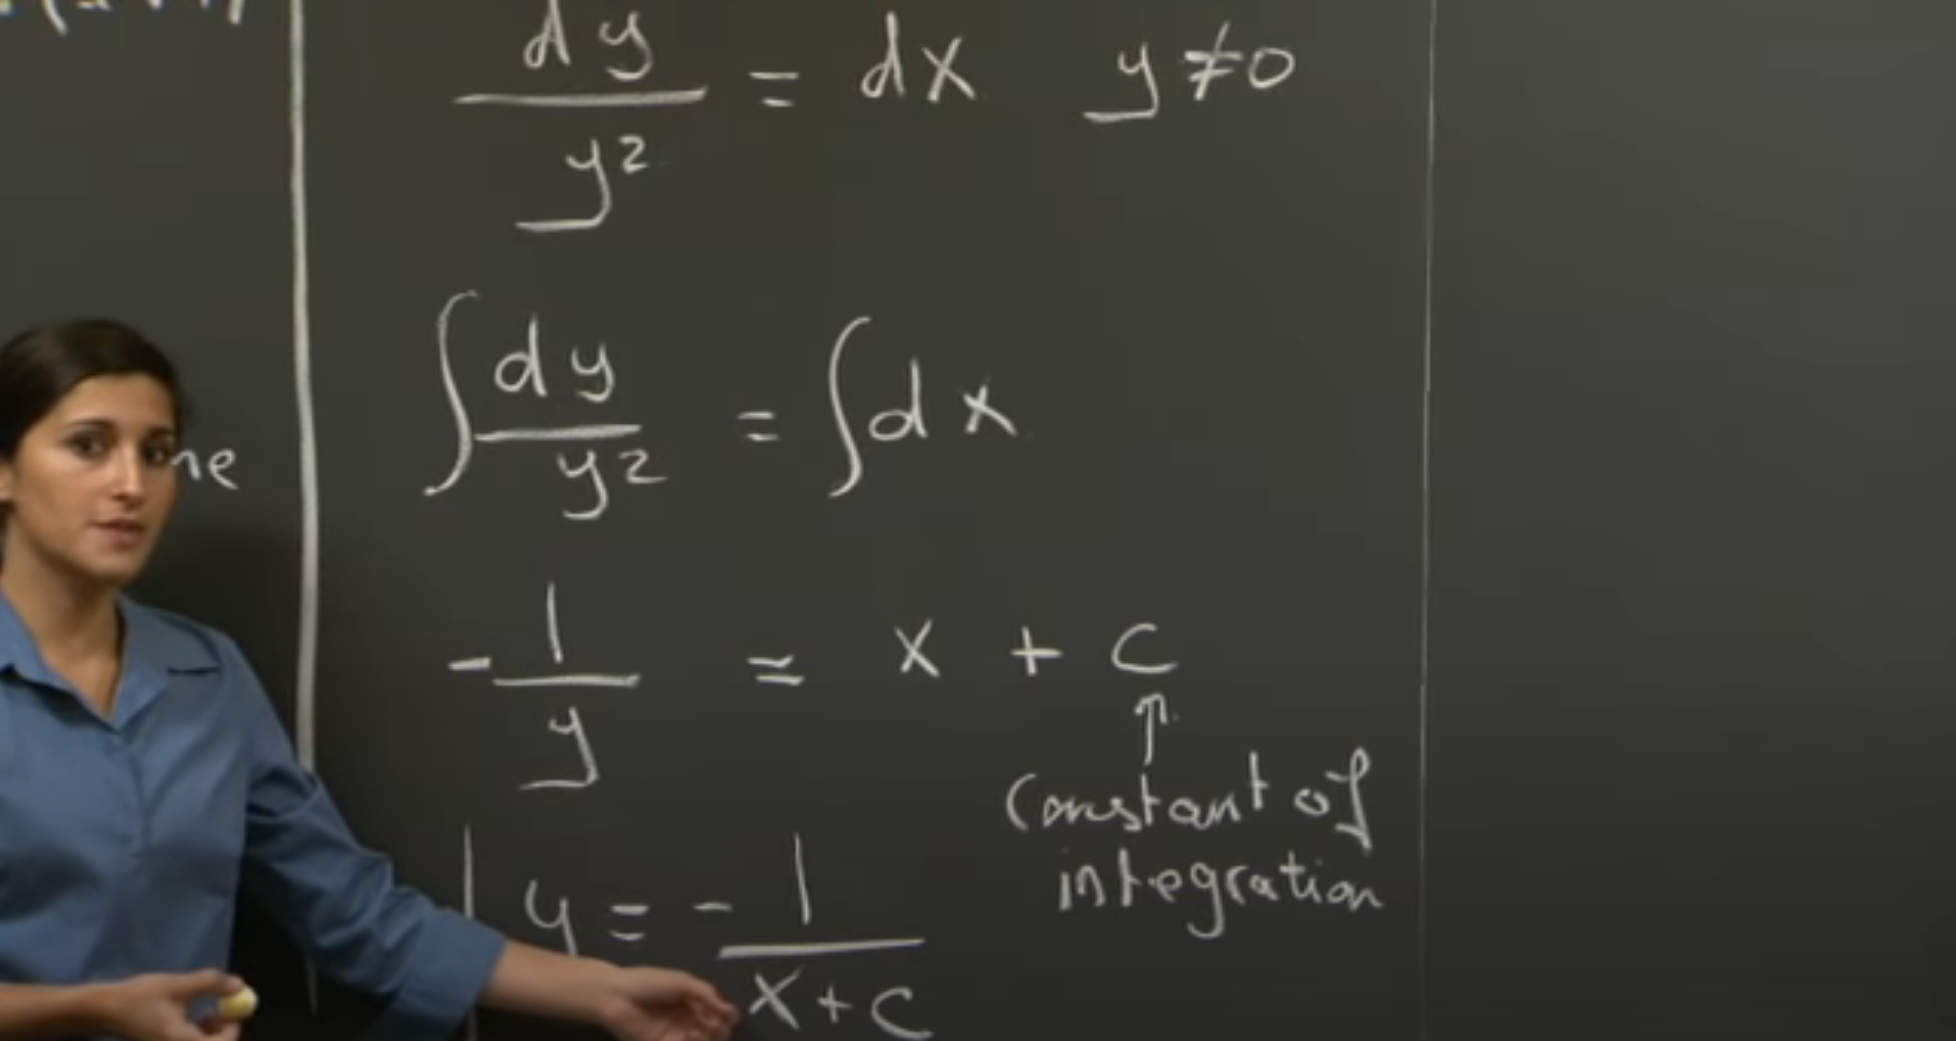 dy/y² = dx y ≠ 0
∫ dy/y² = ∫ dx
-1/y = x + c
↑
constant of
integration
y = -1/(x + c)